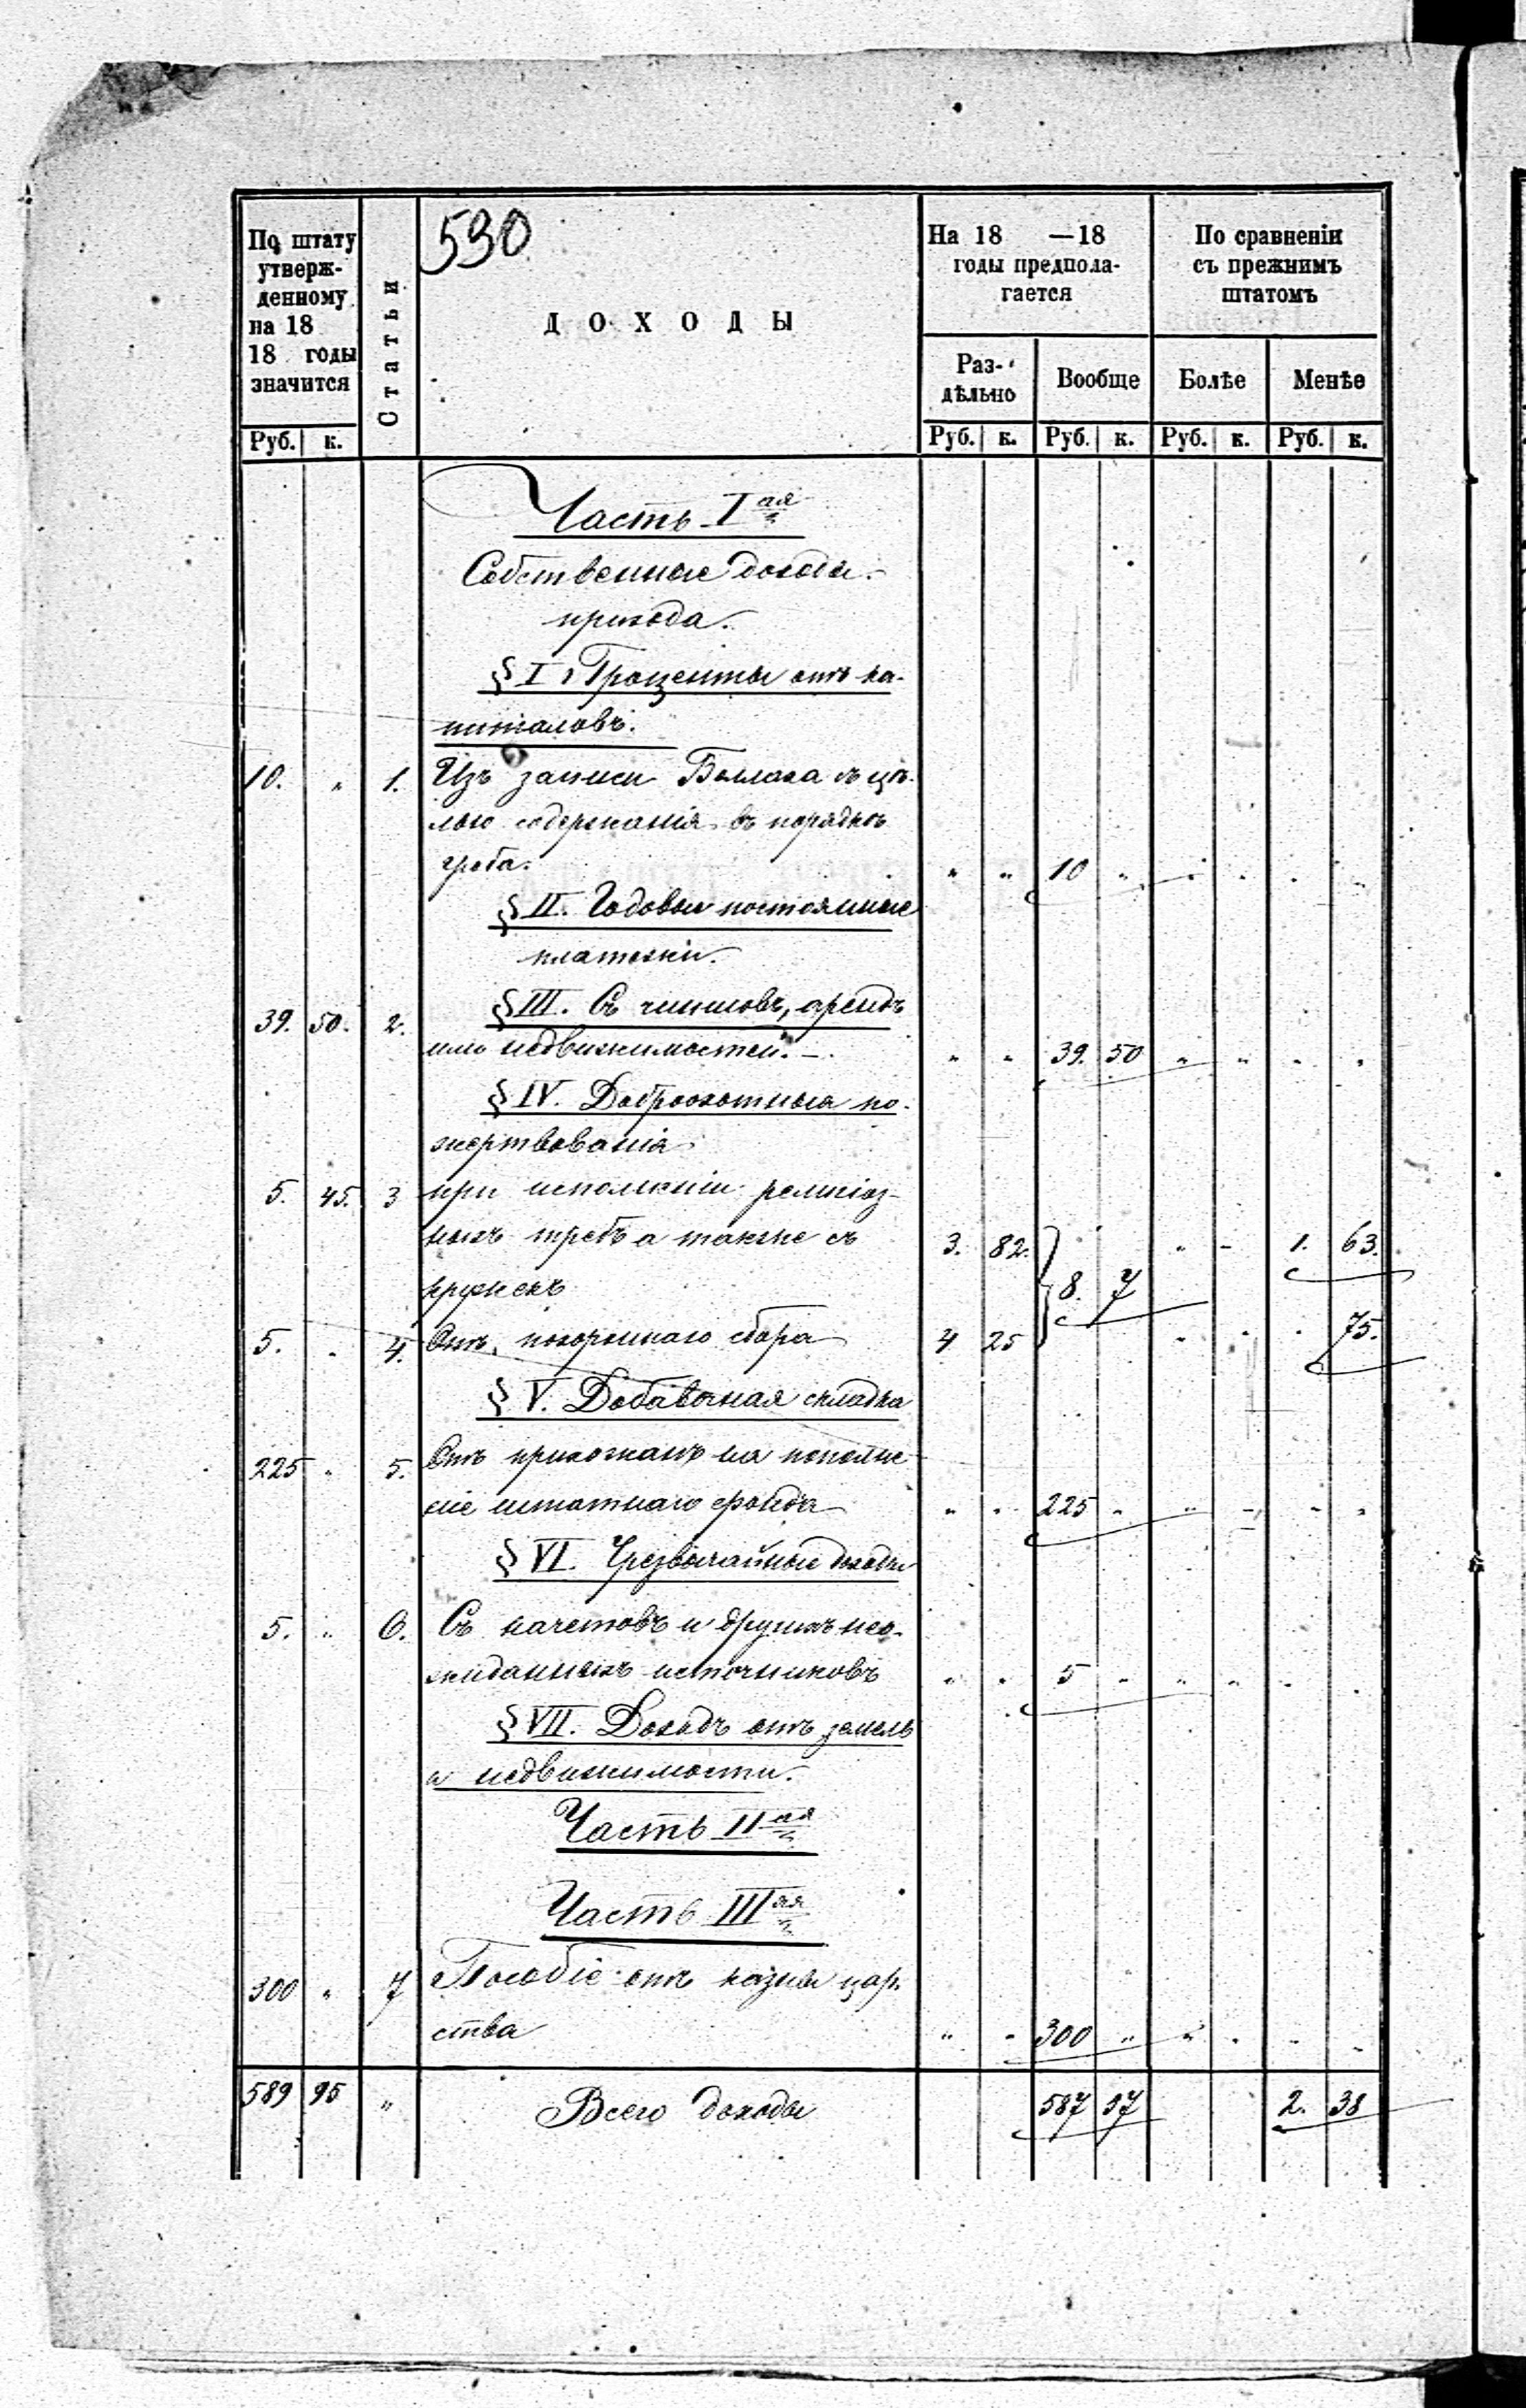 530
По штату утверж-денному на 18 18 годы значится
Статьи
ДОХОДЫ
На 18 —18 годы предпола-гается
По сравненіи съ прежнимъ штатомъ
Раз-дѣльно
Вообще
Болѣе
Менѣе
Руб. к. Руб. к. Руб. к. Руб. к. Руб. к.
Часть I ая
Собственные доходы
прихода.
§ I Проценты отъ ка-
питаловъ.
10. " 1. Изъ записи Валлаха съ цѣ-
лью содержанія въ порядкѣ
гроба. " " 10 " " " " "
§ II. Годовые постоянные
платежи.
§ III. Съ чиншовъ, арендъ
39. 50. 2.
или недвижимостей. — " " 39. 50 " " " "
§ IV. Доброохотныя по-
жертвованія
5. 45. 3 при исполненіи религіоз-
ныхъ требъ а также съ 3. 82. " - 1. 63.
кружекъ 8. 7
5. " 4. Отъ похороннаго сбора 4 25 " " " 75.
§ V. Добавочная складка
225 " 5. Отъ прихожанъ на пополне-
ніе штатнаго фонда " " 225 " " " " "
§ VI. Чрезвычайные доходы
5. " 6. Съ начетовъ и другихъ нео-
жиданныхъ источниковъ " " 5 " " " " "
§ VII. Доходъ отъ земель
и недвижимости.
Часть II ая
Часть III ая
300 " 7 Пособіе отъ казны цар-
ства " " 300 " " " " "
589 95 " Всего доходы 587 57 2. 38